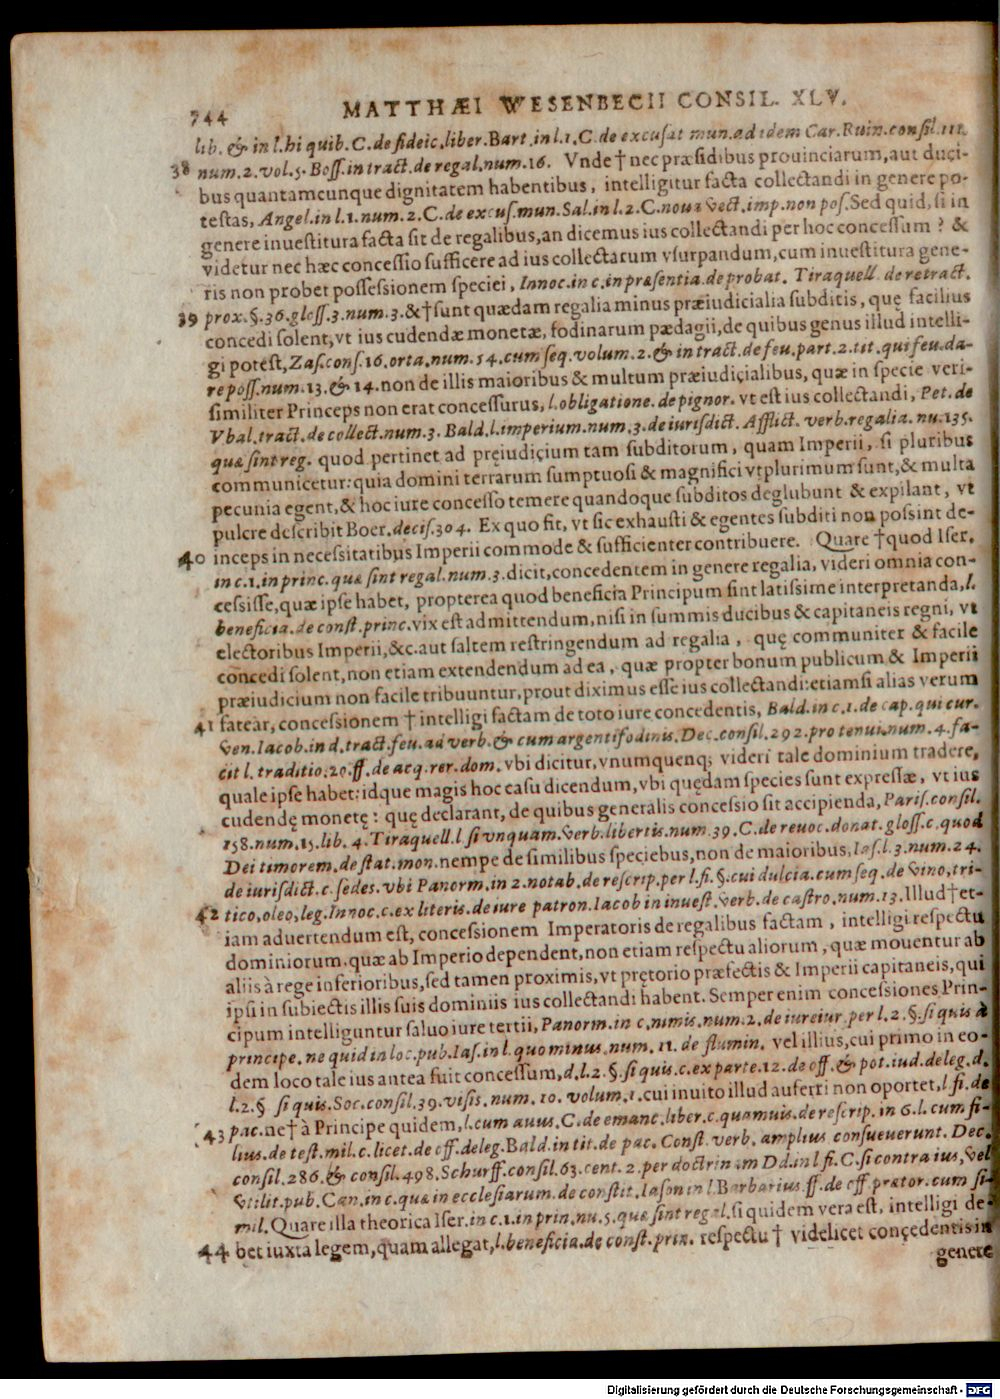 744 MATTHÆI WESENBECII CONSIL. XLV.
lib. & in l. hi quib. C. de fideic. liber. Bart. in l. 1. C. de excusat mun. ad idem Car. Ruin. consil. 111.
38 num. 2. vol. 5. Boss. in tract. de regal. num. 16. Vnde † nec præsidibus prouinciarum, aut duci-
bus quantamcunque dignitatem habentibus, intelligitur facta collectandi in genere po-
testas, Angel. in l. 1. num. 2. C. de excus. mun. Sal. in l. 2. C. noua vect. imp. non pos. Sed quid, si in
genere inuestitura facta sit de regalibus, an dicemus ius collectandi per hoc concessum? &
videtur nec hæc concessio sufficere ad ius collectarum vsurpandum, cum inuestitura gene-
ris non probet possessionem speciei, Innoc. in c. in præsentia. de probat. Tiraquell. de retract.
39 prox. §. 36. gloss. 3. num. 3. & † sunt quædam regalia minus præiudicialia subditis, quę facilius
concedi solent, vt ius cudendæ monetæ, fodinarum pædagii, de quibus genus illud intelli-
gi potest, Zas. cons. 16. orta. num. 54. cum seq. volum. 2. & in tract. de feu. part. 2. tit. qui feu. da-
re poss. num. 13. & 14. non de illis maioribus & multum præiudicialibus, quæ in specie veri-
similiter Princeps non erat concessurus, l. obligatione. de pignor. vt est ius collectandi, Pet. de
Vbal. tract. de collect. num. 3. Bald. l. imperium. num. 3. de iurisdict. Afflict. verb. regalia. nu. 135.
quæ sint reg. quod pertinet ad pręiudicium tam subditorum, quam Imperii, si pluribus
communicetur: quia domini terrarum sumptuosi & magnifici vt plurimum sunt, & multa
pecunia egent, & hoc iure concesso temere quandoque subditos deglubunt & expilant, vt
pulcre describit Boer. decis. 304. Ex quo fit, vt sic exhausti & egentes subditi non possint de-
40 inceps in necessitatibus Imperii commode & sufficienter contribuere. Quare † quod Iser.
in c. 1. in princ. quæ sint regal. num. 3. dicit, concedentem in genere regalia, videri omnia con-
cessisse, quæ ipse habet, propterea quod beneficia Principum sint latissime interpretanda, l.
beneficia. de const. princ. vix est admittendum, nisi in summis ducibus & capitaneis regni, vt
electoribus Imperii, &c. aut saltem restringendum ad regalia, quę communiter & facile
concedi solent, non etiam extendendum ad ea, quæ propter bonum publicum & Imperii
præiudicium non facile tribuuntur, prout diximus esse ius collectandi: etiamsi alias verum
41 fatear, concessionem † intelligi factam de toto iure concedentis, Bald. in c. 1. de cap. qui cur.
ven. Iacob. in d. tract. feu. ad verb. & cum argentifodinis. Dec. consil. 292. pro tenui. num. 4. fa-
cit l. traditio. 20. ff. de acq. rer. dom. vbi dicitur, vnumquenq; videri tale dominium tradere,
quale ipse habet: idque magis hoc casu dicendum, vbi quędam species sunt expressæ, vt ius
cudendę monetę: quę declarant, de quibus generalis concessio sit accipienda, Paris. consil.
158. num. 15. lib. 4. Tiraquell. l. si vnquam. verb. libertis. num. 39. C. de reuoc. donat. gloss. c. quod
Dei timorem. de stat. mon. nempe de similibus speciebus, non de maioribus, Ias. l. 3. num. 24.
de iurisdict. c. sedes. vbi Panorm. in 2. notab. de rescrip. per l. fi. §. cui dulcia. cum seq. de vino, tri-
42 tico, oleo, leg. Innoc. c. ex literis. de iure patron. Iacob in inuest. verb. de castro. num. 13. Illud † et-
iam aduertendum est, concessionem Imperatoris de regalibus factam, intelligi respectu
dominiorum. quæ ab Imperio dependent, non etiam respectu aliorum, quæ mouentur ab
aliis à rege inferioribus, sed tamen proximis, vt prętorio præfectis & Imperii capitaneis, qui
ipsi in subiectis illis suis dominiis ius collectandi habent. Semper enim concessiones Prin-
cipum intelliguntur saluo iure tertii, Panorm. in c. nimis. num. 2. de iureiur. per l. 2. §. si quis à
principe. ne quid in loc. pub. Ias. in l. quo minus. num. 11. de flumin. vel illius, cui primo in eo-
dem loco tale ius antea fuit concessum, d. l. 2. §. si quis. c. ex parte. 12. de off. & pot. iud. deleg. d.
l. 2. § si quis. Soc. consil. 39. visis. num. 10. volum. 1. cui inuito illud auferri non oportet, l. fi. de
43 pac. ne † à Principe quidem, l. cum auus. C. de emanc. liber. c. quamuis. de rescrip. in 6. l. cum fi-
lius. de test. mil. c. licet. de off. deleg. Bald. in tit. de pac. Const. verb. amplius consueuerunt. Dec.
consil. 286. & consil. 498. Schurff. consil. 63. cent. 2. per doctrinam Dd. in l. fi. C. si contra ius, vel
vtilit. pub. Can. in c. quæ in ecclesiarum. de constit. Iason in l. Barbarius. ff. de off prætor. cum si-
mil. Quare illa theorica Iser. in c. 1. in prin. nu. 5. quæ sint regal. si quidem vera est, intelligi de-
44 bet iuxta legem, quam allegat, l. beneficia. de const. prin. respectu † videlicet concedentis in
genere
Digitalisierung gefördert durch die Deutsche Forschungsgemeinschaft - DFG